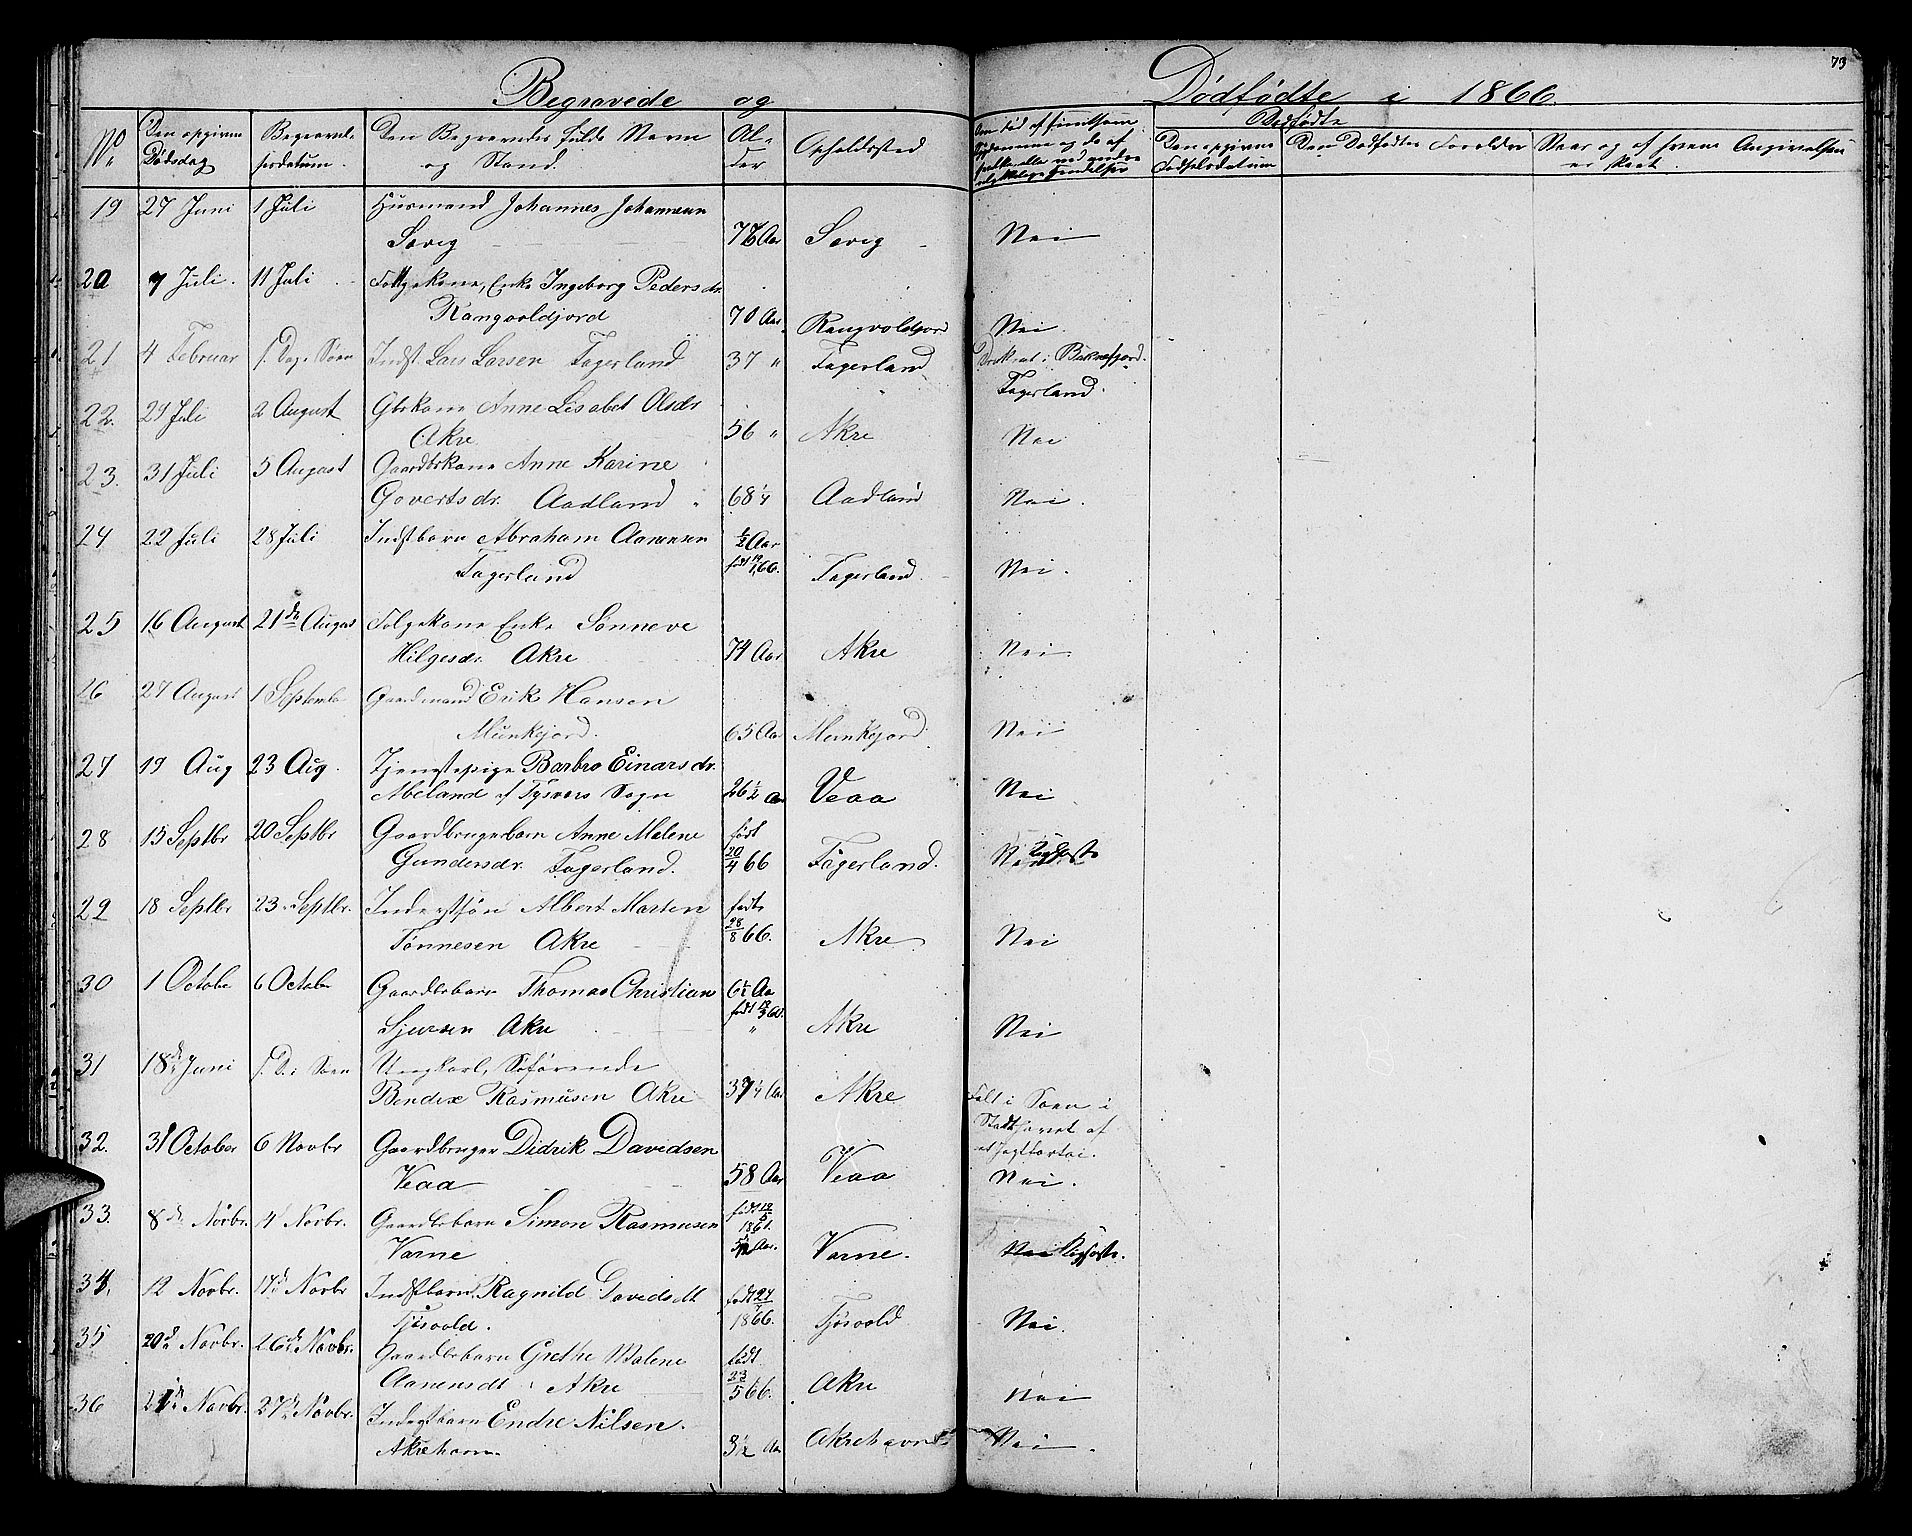 73
Begravede og Dødfødte i 1866.
No Den opgivne Dødsdag Begravelsesdatum. Den Begravedes fulde Navn og Stand. Alder Opholdssted
Dødfødte
Den opgivne Fødselsdatum Den Dødfødtes Forældre Naar og af hvem Angivelsen er skeet.
19 27 Juni 1 Juli Husmand Johannes Johannesen
Sævig 76 Aar Sævig Nei
20 7 Juli. 11 Juli Følgekone, Enke Ingeborg Pedersdr.
Rangvoldjord 70 Aar Rangvoldjord Nei.
21 4 Februar f. Dag. Søen Indst. Lars Larsen Fagerland 37 " Fagerland Druknet i Buknefjord.
Fagerland.
22. 29 Juli 2 August Gbrkone Anne Lisabet Olsdr
Akre 56 " Akre Nei
23. 31 Juli 5 August Gaardbrkone Anne Karine
Govertsdr. Aadland 68 1/4 Aadland Nei.
24 22 Juli 28 Juli Indstbarn Abraham Aanensen 1/2 Aar
Fagerland Fagerland. Nei.
25 16 August 21de August Følgekone Enke Sønneve
Hilgesdr. Akre 74 Aar Akre Nei.
26 27 August 1 Septembr Gaardmand Erik Hansen
Munkejord. 65 Aar Munkejord Nei
27 19 Aug 23 Aug. Tjenestepige Barbro Einarsdr.
Abeland af Tysvær Sogn 26 1/2 Aar Veaa Nei
28 15 Septbr 20 Septbr Gaardbrugerbarn Anne Malene født
Gundersdr. Fagerland. 20/4 66 Fagerland. Nei Kighoste
29 18 Septbr 23. Septbr. Inderstsøn Albert Martin født
Tønnesen Akre 28/8 66. Akre Nei
30 1 Octobr 6 Octobr Gaardbrbarn Thomas Christian 6 1/2 Aar
Sjursen Akre Akre Nei
31 18de Juni f. D. i Søen Ungkarl, Søfarende
Bendix Rasmusen Akre 37 1/4 Aar Akre Faldt i Søen i
Stadthavet af
et Jagtfartøi.
32. 31 October 6 Novbr Gaardbruger Didrik Davidsen
Veaa 58 Aar Veaa Nei.
33. 8de Novbr. 14 Novbr. Gaardbrbarn Simon Rasmusen født
1861.
Varne Varne. Nei Kighoste.
34. 12 Novbr. 17de Novbr Indstbarn Ragnild Davidsdt født 27/7
Tjøsvold. 1866. Tjøsvold Nei.
35 20de Novbr. 26de Novbr. Gaardbrbarn Grethe Malene født
Aanensdt Akre 23/5 66. Akre Nei
36 21de Novbr. 27de Novbr. Inderstbarn Endre Nilsen.
Akrehavn. 3 1/2 Aar Akrehavn Nei.